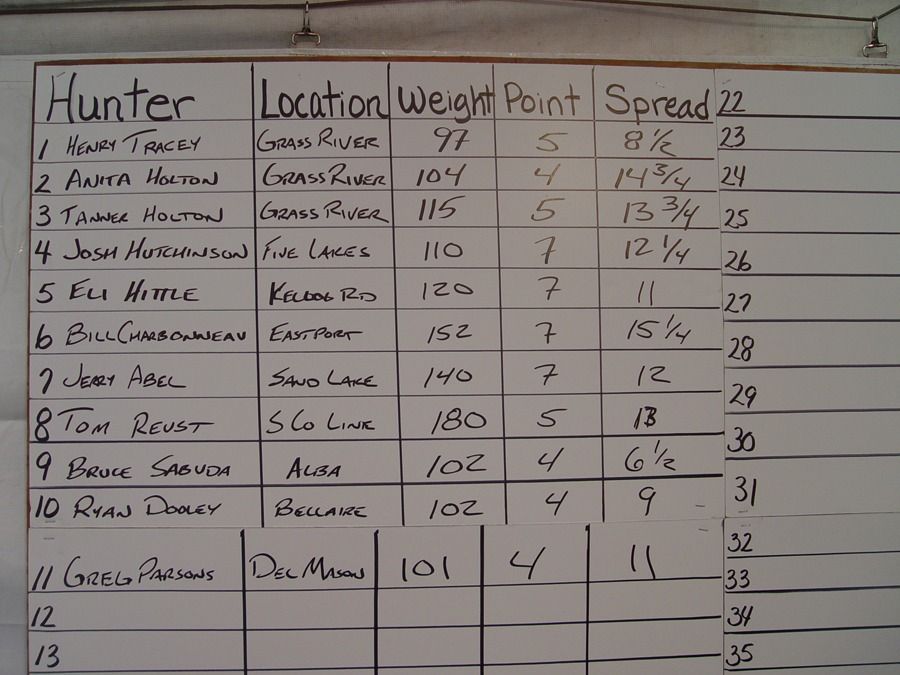 Hunter Location Weight Point Spread 22
1 HENRY TRACEY GRASS RIVER 97 5 8 1/2 23
2 ANITA HOLTON GRASS RIVER 104 4 14 3/4 24
3 TANNER HOLTON GRASS RIVER 115 5 13 3/4 25
4 JOSH HUTCHINSON FIVE LAKES 110 7 12 1/4 26
5 ELI HITTLE KELLOG RD 120 7 11 27
6 BILL CHARBONNEAU EASTPORT 152 7 15 1/4 28
7 JERRY ABEL SAND LAKE 140 7 12 29
8 TOM REUST S CO LINE 180 5 13 30
9 BRUCE SABUDA ALBA 102 4 6 1/2 31
10 RYAN DOOLEY BELLAIRE 102 4 9
11 GREG PARSONS DEL MASON 101 4 11 32
33
12 34
13 35